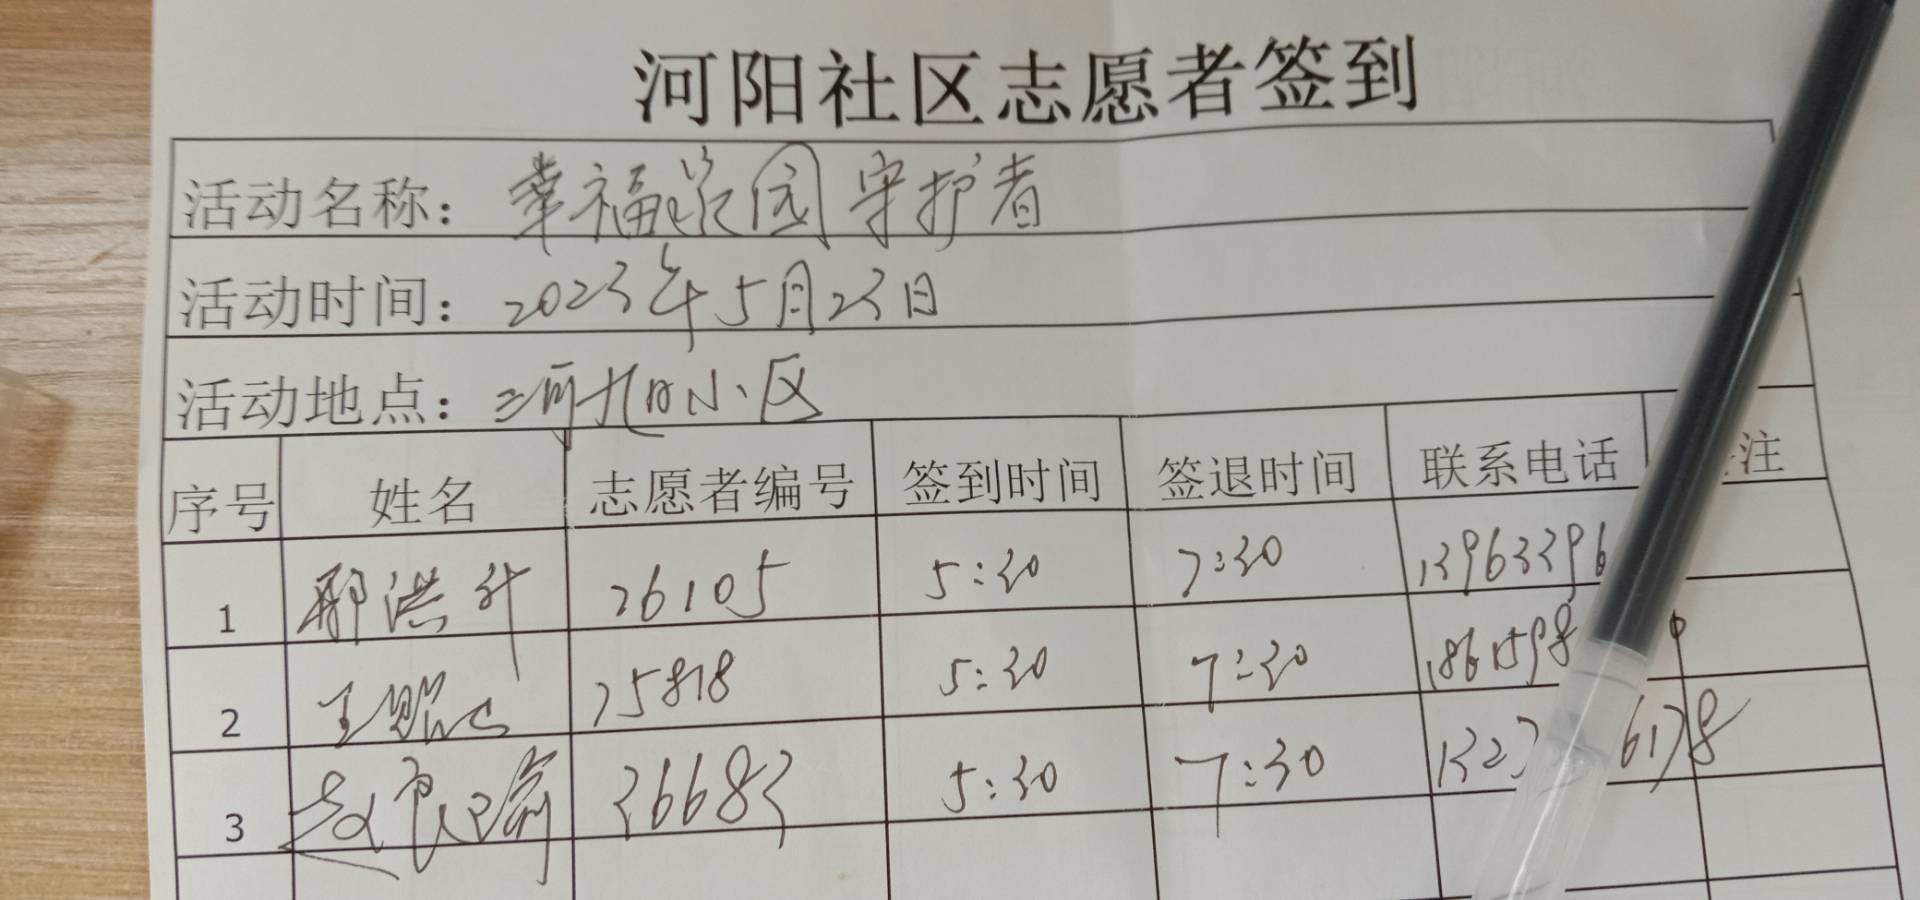 河阳社区志愿者签到
活动名称：幸福家园守护者
活动时间：2023年5月23日
活动地点：河阳小区
序号 姓名 志愿者编号 签到时间 签退时间 联系电话 注
1 邢洪升 26105 5:30 7:30 13963396
2 王 25818 5:30 7:30 1861598
3 赵 36683 5:30 7:30 1327 6178